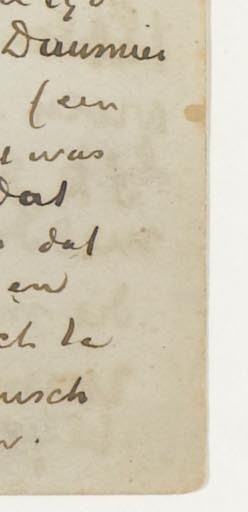 Daumier
(een
was
dat
dat
en
ch te
usch